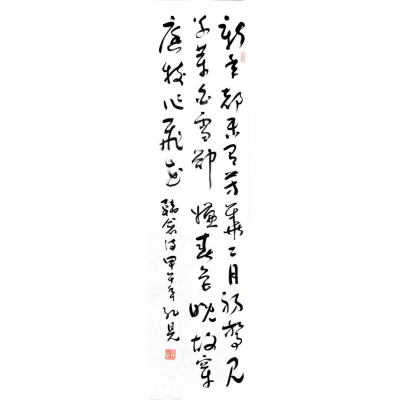 新年都未有芳華二月初驚見
草芽白雪卻嫌春色晚故穿
庭樹作飛花
韓愈詩甲午年孔見